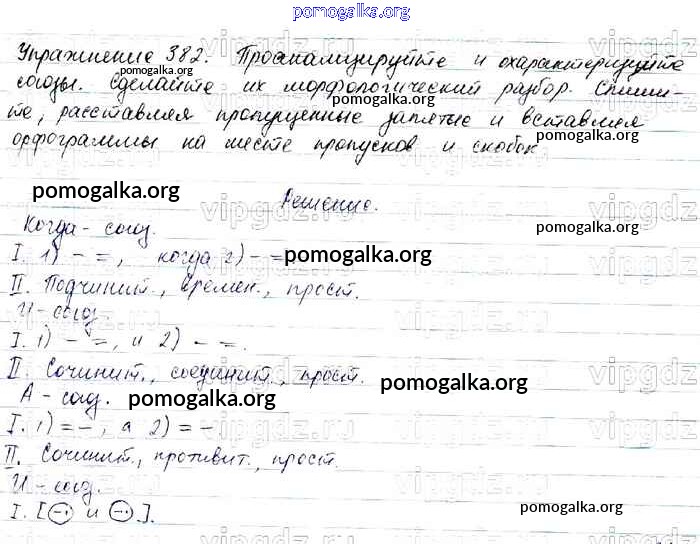 pomogalka.org
Упражнение 382. Проанализируйте и охарактеризуйте
союзы. Сделайте их морфологический разбор. Спиши-
те, расставляя пропущенные запятые и вставляя
орфограммы на месте пропусков и скобок
Решение.
Когда - союз.
I. 1) - =, когда 2) - =
II. Подчинит., времен., прост.
И - союз
I. 1) - =, и 2) - =.
II. Сочинит., соединит., прост.
А - союз.
I. 1) = -, а 2) = -
II. Сочинит., противит., прост.
И - союз.
I. [ - и - ].
pomogalka.org
pomogalka.org
pomogalka.org
pomogalka.org
pomogalka.org
pomogalka.org
pomogalka.org
pomogalka.org
pomogalka.org
pomogalka.org
vipgdz.ru